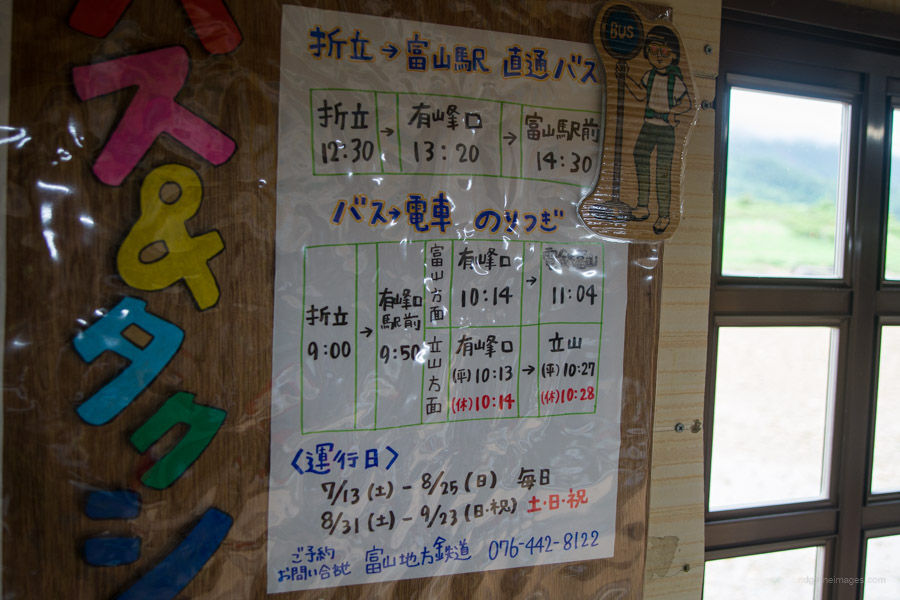 バス&タクシ
折立→富山駅 直通バス
BUS
折立 → 有峰口 → 富山駅前
12:30 13:20 14:30
バス→電車 のりつぎ
富山方面 有峰口 →
10:14 11:04
折立 → 有峰口駅前
9:00 9:50
立山方面 有峰口 → 立山
(平)10:13 (平)10:27
(休)10:14 (休)10:28
〈運行日〉
7/13(土) - 8/25(日) 毎日
8/31(土) - 9/23(日・祝) 土・日・祝
ご予約
お問い合せ 富山地方鉄道 076-442-8122